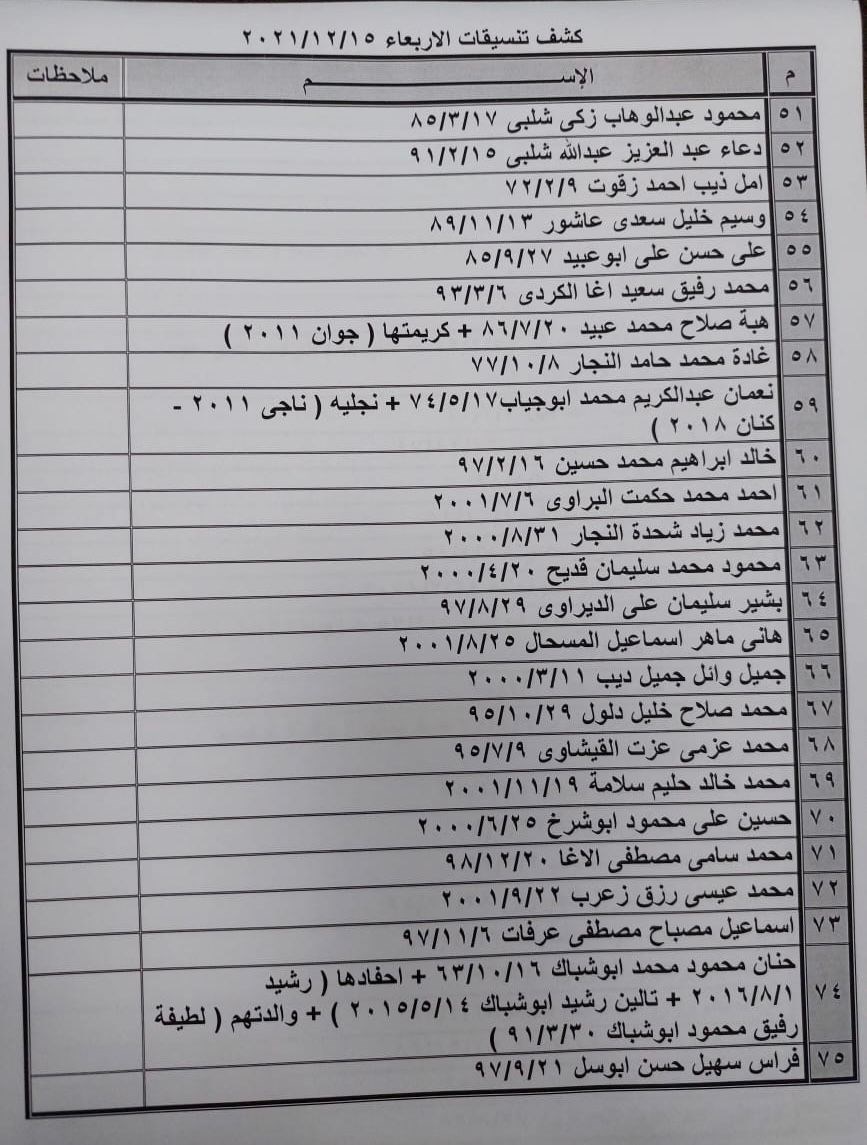 كشف تنسيقات الاربعاء ٢٠٢١/١٢/١٥
م الإســـــــــم ملاحظات
٥١ محمود عبدالوهاب زكى شلبى ٨٥/٣/١٧
٥٢ دعاء عبد العزيز عبدالله شلبى ٩١/٢/١٥
٥٣ امل ذيب احمد زقوت ٧٢/٢/٩
٥٤ وسيم خليل سعدى عاشور ٨٩/١١/١٣
٥٥ على حسن على ابوعبيد ٨٥/٩/٢٧
٥٦ محمد رفيق سعيد اغا الكردى ٩٣/٣/٦
٥٧ هبة صلاح محمد عبيد ٨٦/٧/٢٠ + كريمتها ( جوان ٢٠١١ )
٥٨ غادة محمد حامد النجار ٧٧/١٠/٨
٥٩ نعمان عبدالكريم محمد ابوجياب٧٤/٥/١٧ + نجليه ( ناجى ٢٠١١ -
كنان ٢٠١٨ )
٦٠ خالد ابراهيم محمد حسين ٩٧/٢/١٦
٦١ احمد محمد حكمت البراوى ٢٠٠١/٧/٦
٦٢ محمد زياد شحدة النجار ٢٠٠٠/٨/٣١
٦٣ محمود محمد سليمان قديح ٢٠٠٠/٤/٢٠
٦٤ بشير سليمان على الديراوى ٩٧/٨/٢٩
٦٥ هانى ماهر اسماعيل المسحال ٢٠٠١/٨/٢٥
٦٦ جميل وائل جميل ديب ٢٠٠٠/٣/١١
٦٧ محمد صلاح خليل دلول ٩٥/١٠/٢٩
٦٨ محمد عزمى عزت القيشاوى ٩٥/٧/٩
٦٩ محمد خالد حليم سلامة ٢٠٠١/١١/١٩
٧٠ حسين على محمود ابوشرخ ٢٠٠٠/٦/٢٥
٧١ محمد سامى مصطفى الاغا ٩٨/١٢/٢٠
٧٢ محمد عيسى رزق زعرب ٢٠٠١/٩/٢٢
٧٣ اسماعيل مصباح مصطفى عرفات ٩٧/١١/٦
٧٤ حنان محمود محمد ابوشباك ٦٣/١٠/١٦ + احفادها ( رشيد
٢٠١٦/٨/١ + تالين رشيد ابوشباك ٢٠١٥/٥/١٤ ) + والدتهم ( لطيفة
رفيق محمود ابوشباك ٩١/٣/٣٠ )
٧٥ فراس سهيل حسن ابوسل ٩٧/٩/٢١